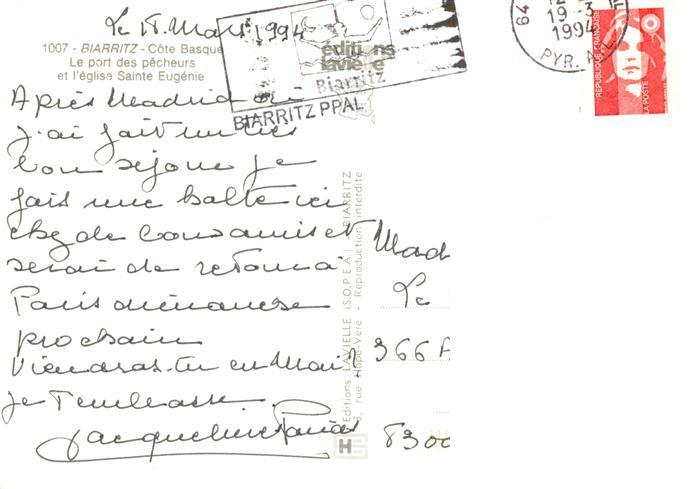 Le 18 Mars 1994
1007 - BIARRITZ - Côte Basque
Le port des pêcheurs
et l'église Sainte Eugénie
Après Madrid où
j'ai fait un très
bon séjour je
fais une halte ici
chez de bons amis et
serai de retour à
Paris dimanche
prochain
Viendras-tu en Mai ?
Je t'embrasse
Jacqueline
éditions
lavielle
Biarritz
BIARRITZ PPAL
64
19 - 3
1994
PYR. ATL
REPUBLIQUE FRANÇAISE
LA POSTE
Editions LAVIELLE (S.O.P.E.A.) - BIARRITZ
3, rue Hope-Vere - Reproduction interdite
Mad
Le
366 A
8300